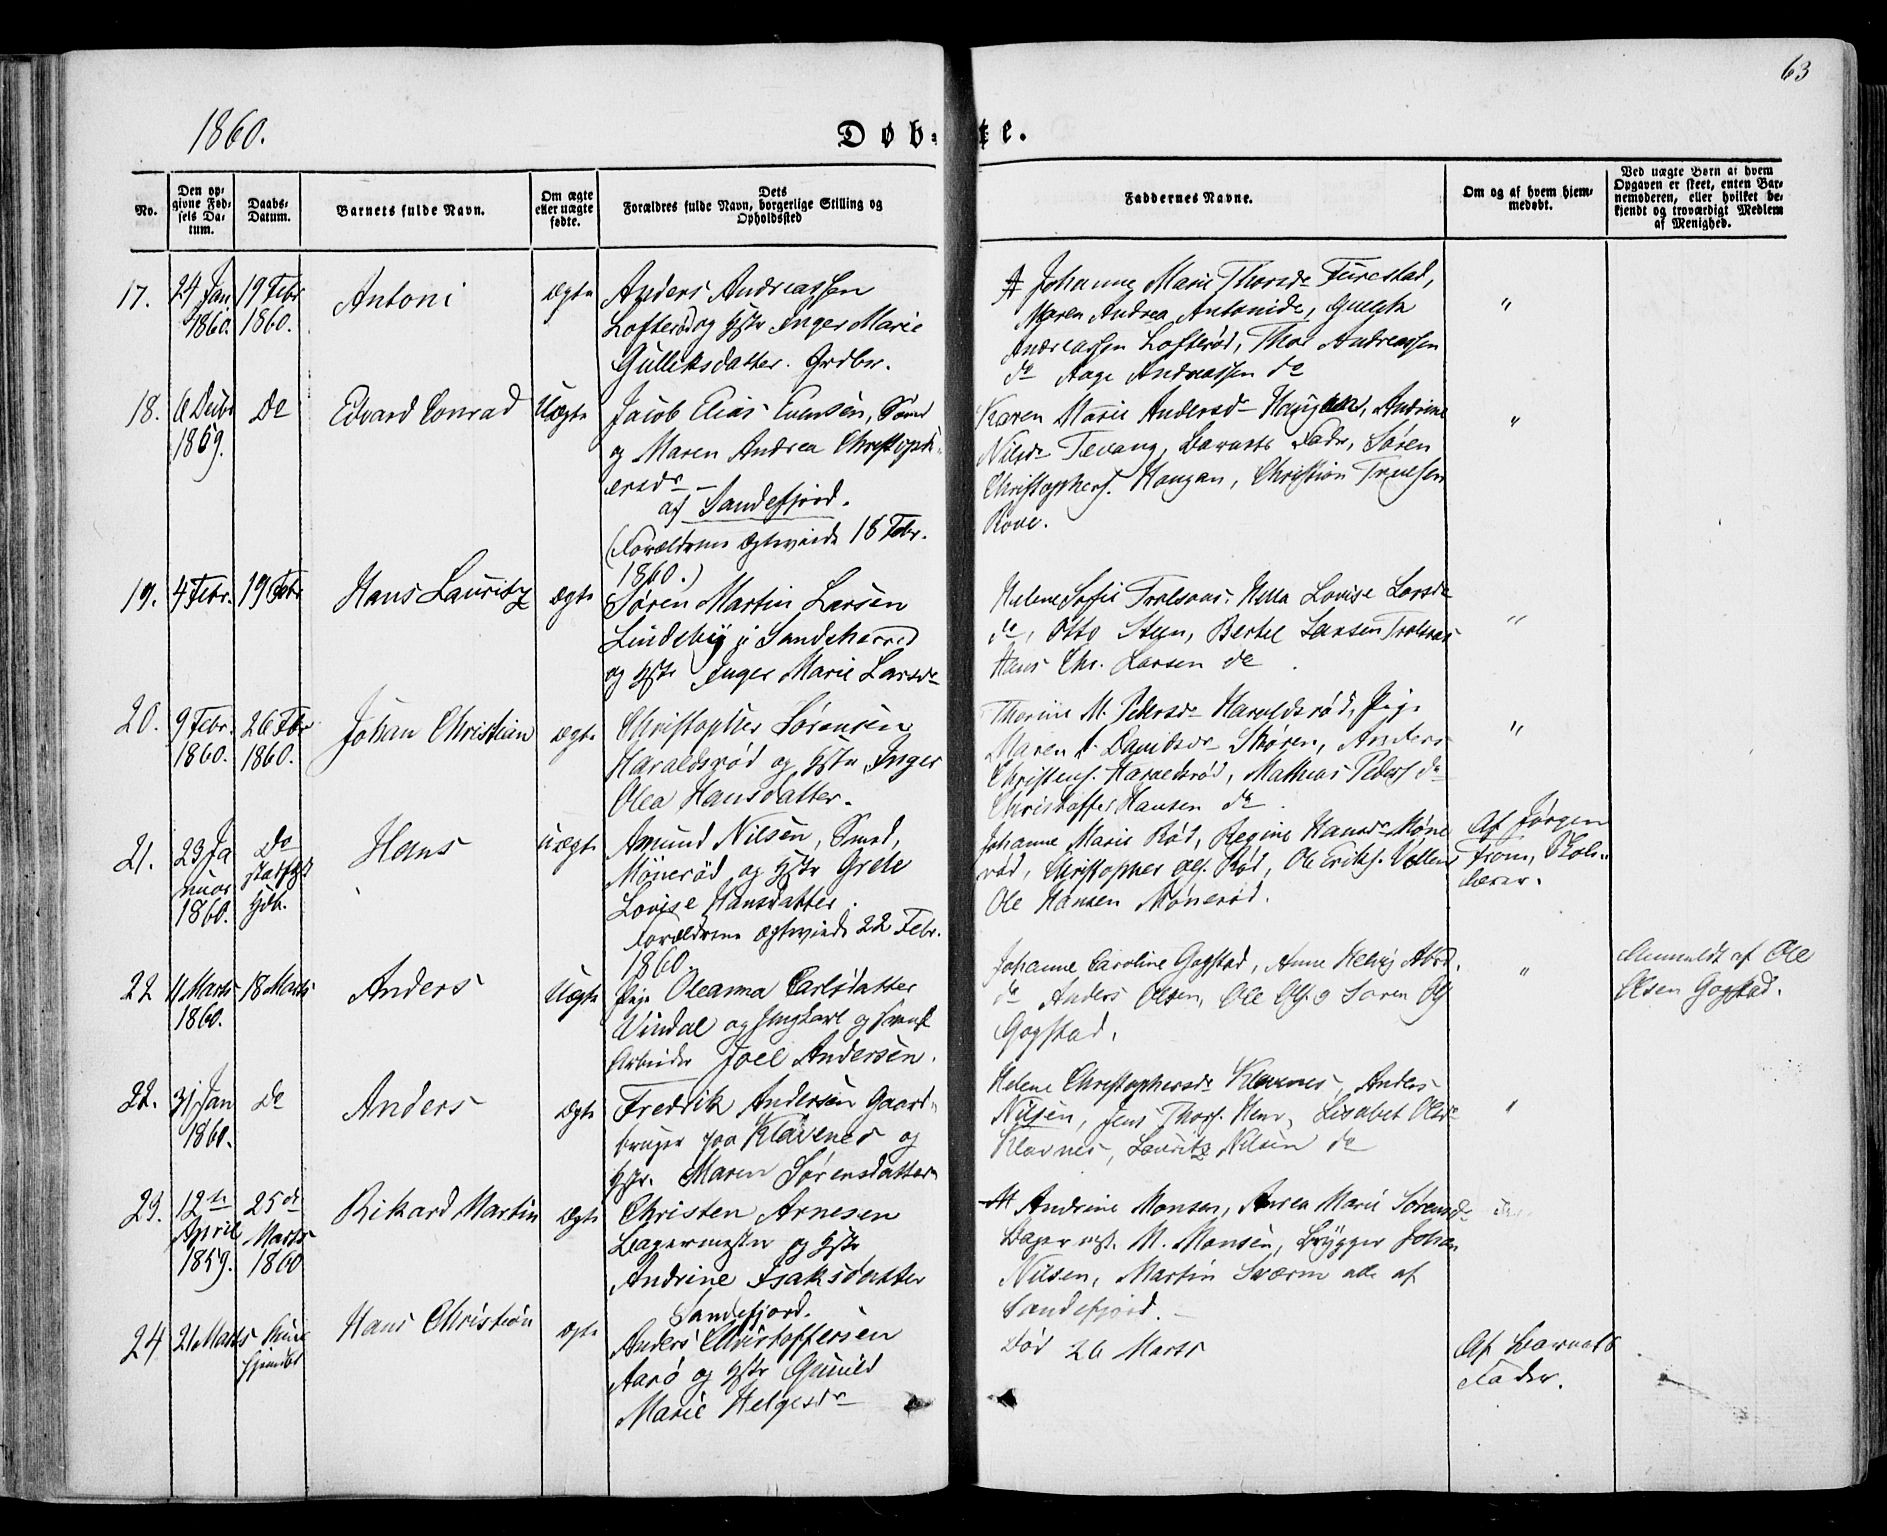 63
1860.
Døb-te.
No.
Den op-
givne Fød-
sels Da-
tum.
Daabs-
Datum.
Barnets fulde Navn.
Om ægte
eller uægte
fødte.
Dets
Forældres fulde Navn, borgerlige Stilling og
Opholdssted
Faddernes Navne.
Om og af hvem hjem-
medøbt.
Ved uægte Børn at hvem
Opgaven er skeet, enten Bar-
nemoderen, eller hvilket be-
kjendt og troværdigt Medlem
af Menighed.
17.
24 Jan
1860.
19 Febr
1860.
Antoni
Ægte
Anders Andreassen
Lofterød og Hstr Inger Marie
Gulleksdatter. Grdbr.
Johanne Marie Thorsdr Furestad,
Maren Andrea Antonidr, Gullek
Andreassen Lofterød, Thor Andreassen
do Aage Andreassen do
"
18.
6 Decbr
1859.
Do
Edvard Conrad
Uægte
Jacob Elias Evensen, Smed
og Maren Andrea Christoph-
ersdr
af Sandefjord.
(Forældrene Ægteviede 18 Febr.
1860.)
Karen Marie Andersdr Haugan, Andrine
Nilsdr Tevang, Barnets Fader, Søren
Christophers. Haugan, Christian Truelsen
Rove.
"
19.
4 Febr.
19 Febr
Hans Lauritz
Ægte
Søren Martin Larsen
Lindeby i Sandeherred
og Hstr Inger Marie Larsdr
Helene Sofie Trolsaas. Lovise Larsdr
do, Otto Steen, Bertel Larsen Trolsaas
Hans Chr. Larsen do
"
20.
9 Febr.
1860.
26 Febr
1860.
Johan Christian
Ægte
Christopher Sørensen
Haraldsrød og Hstr Inger
Olea Hansdatter.
Thorine M. Pedersdr Haraldsrød, Pige
Maren Davidsdr Skøren, Anders
Christens. Haraldsrød, Mathias Peders do
Christoffer Hansen do
"
21.
23 Ja
nuar
1860.
Do
stadfæst
Hdb.
Hans
Uægte
Amund Nilsen, Smed,
Mønerød og Hstr Grete
Lovise Hansdatter.
Forældrene Ægteviede 22 Febr.
1860.
Johanne Marie Rød, Regine Hansdr Møne
rød, Christopher Ols. Rød, Ole Eriks.
Ole Hansen Mønerød.
Af Jørgen
From, Skole-
lærer.
22
11 Marts
1860.
18 Marts
Anders
Uægte
Pige Oleanna Carlsdatter
Vindal og Ungkarl og
Arbeider Joel Andersen.
Johanne Caroline Gogstad, Anne Helvig
do Anders Olsen, Ole Ols. o Soren Ols
Gogstad.
"
Anmeldt af Ole
Olsen Gogstad.
22.
31 Jan
1860.
Do
Anders
Ægte
Fredrik Andersen Gaard-
bruger paa Klavenes og
Hstr. Maren Sørensdatter
Helene Christophersdr Klavenes, Anders
Nilsen, Jens Thors. Hem, Lisabet Olsdr
Klavnes, Lauritz Nilsen do
"
23.
12te
April
1859.
25de
Marts
1860
Rikard Martin
Ægte
Christen Arnesen
Bagermester og Hstr
Andrine Isaksdatter
Sandefjord.
Andrine Monsen, Anrea Marie Sørensdr
Bager mst. M. Monsen, Brygger Johan
Nilsen, Martin Sværm alle af
Sandefjord.
24
21 Marts
Kun
hjemdøbt
Hans Christian
Ægte
Anders Christoffersen
Aarø og Hstr Gunild
Marie Helgesdr
Død 26 Marts
Af Barnets
Fader.